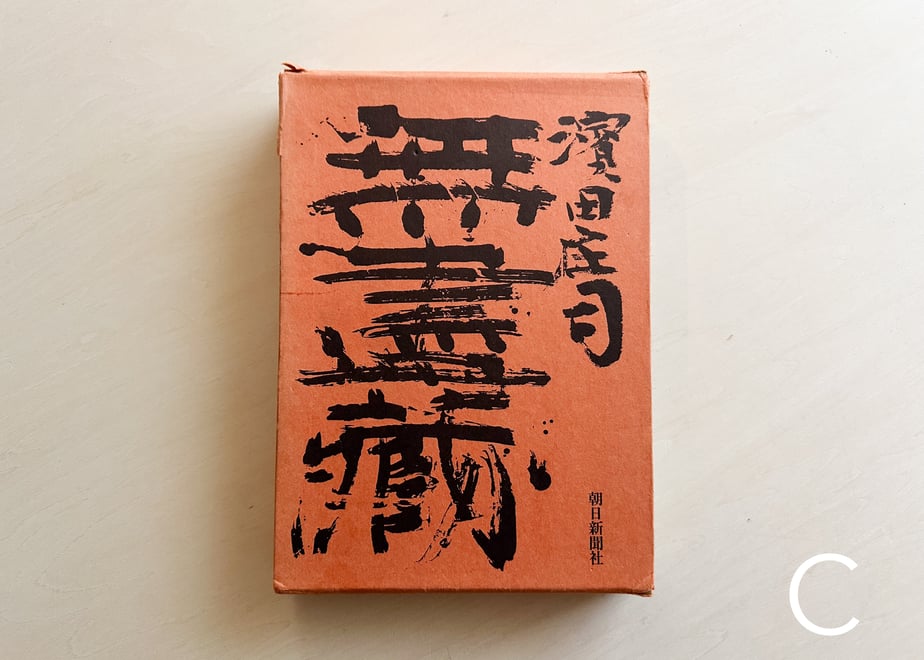 濱田庄司
無盡蔵
朝日新聞社
C